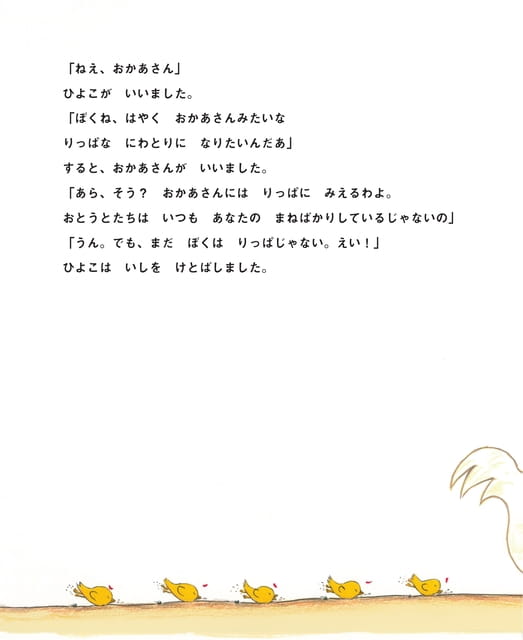 「ねえ、おかあさん」
ひよこが　いいました。
「ぼくね、はやく　おかあさんみたいな
りっぱな　にわとりに　なりたいんだあ」
すると、おかあさんが　いいました。
「あら、そう？　おかあさんには　りっぱに　みえるわよ。
おとうとたちは　いつも　あなたの　まねばかりしているじゃないの」
「うん。でも、まだ　ぼくは　りっぱじゃない。えい！」
ひよこは　いしを　けとばしました。